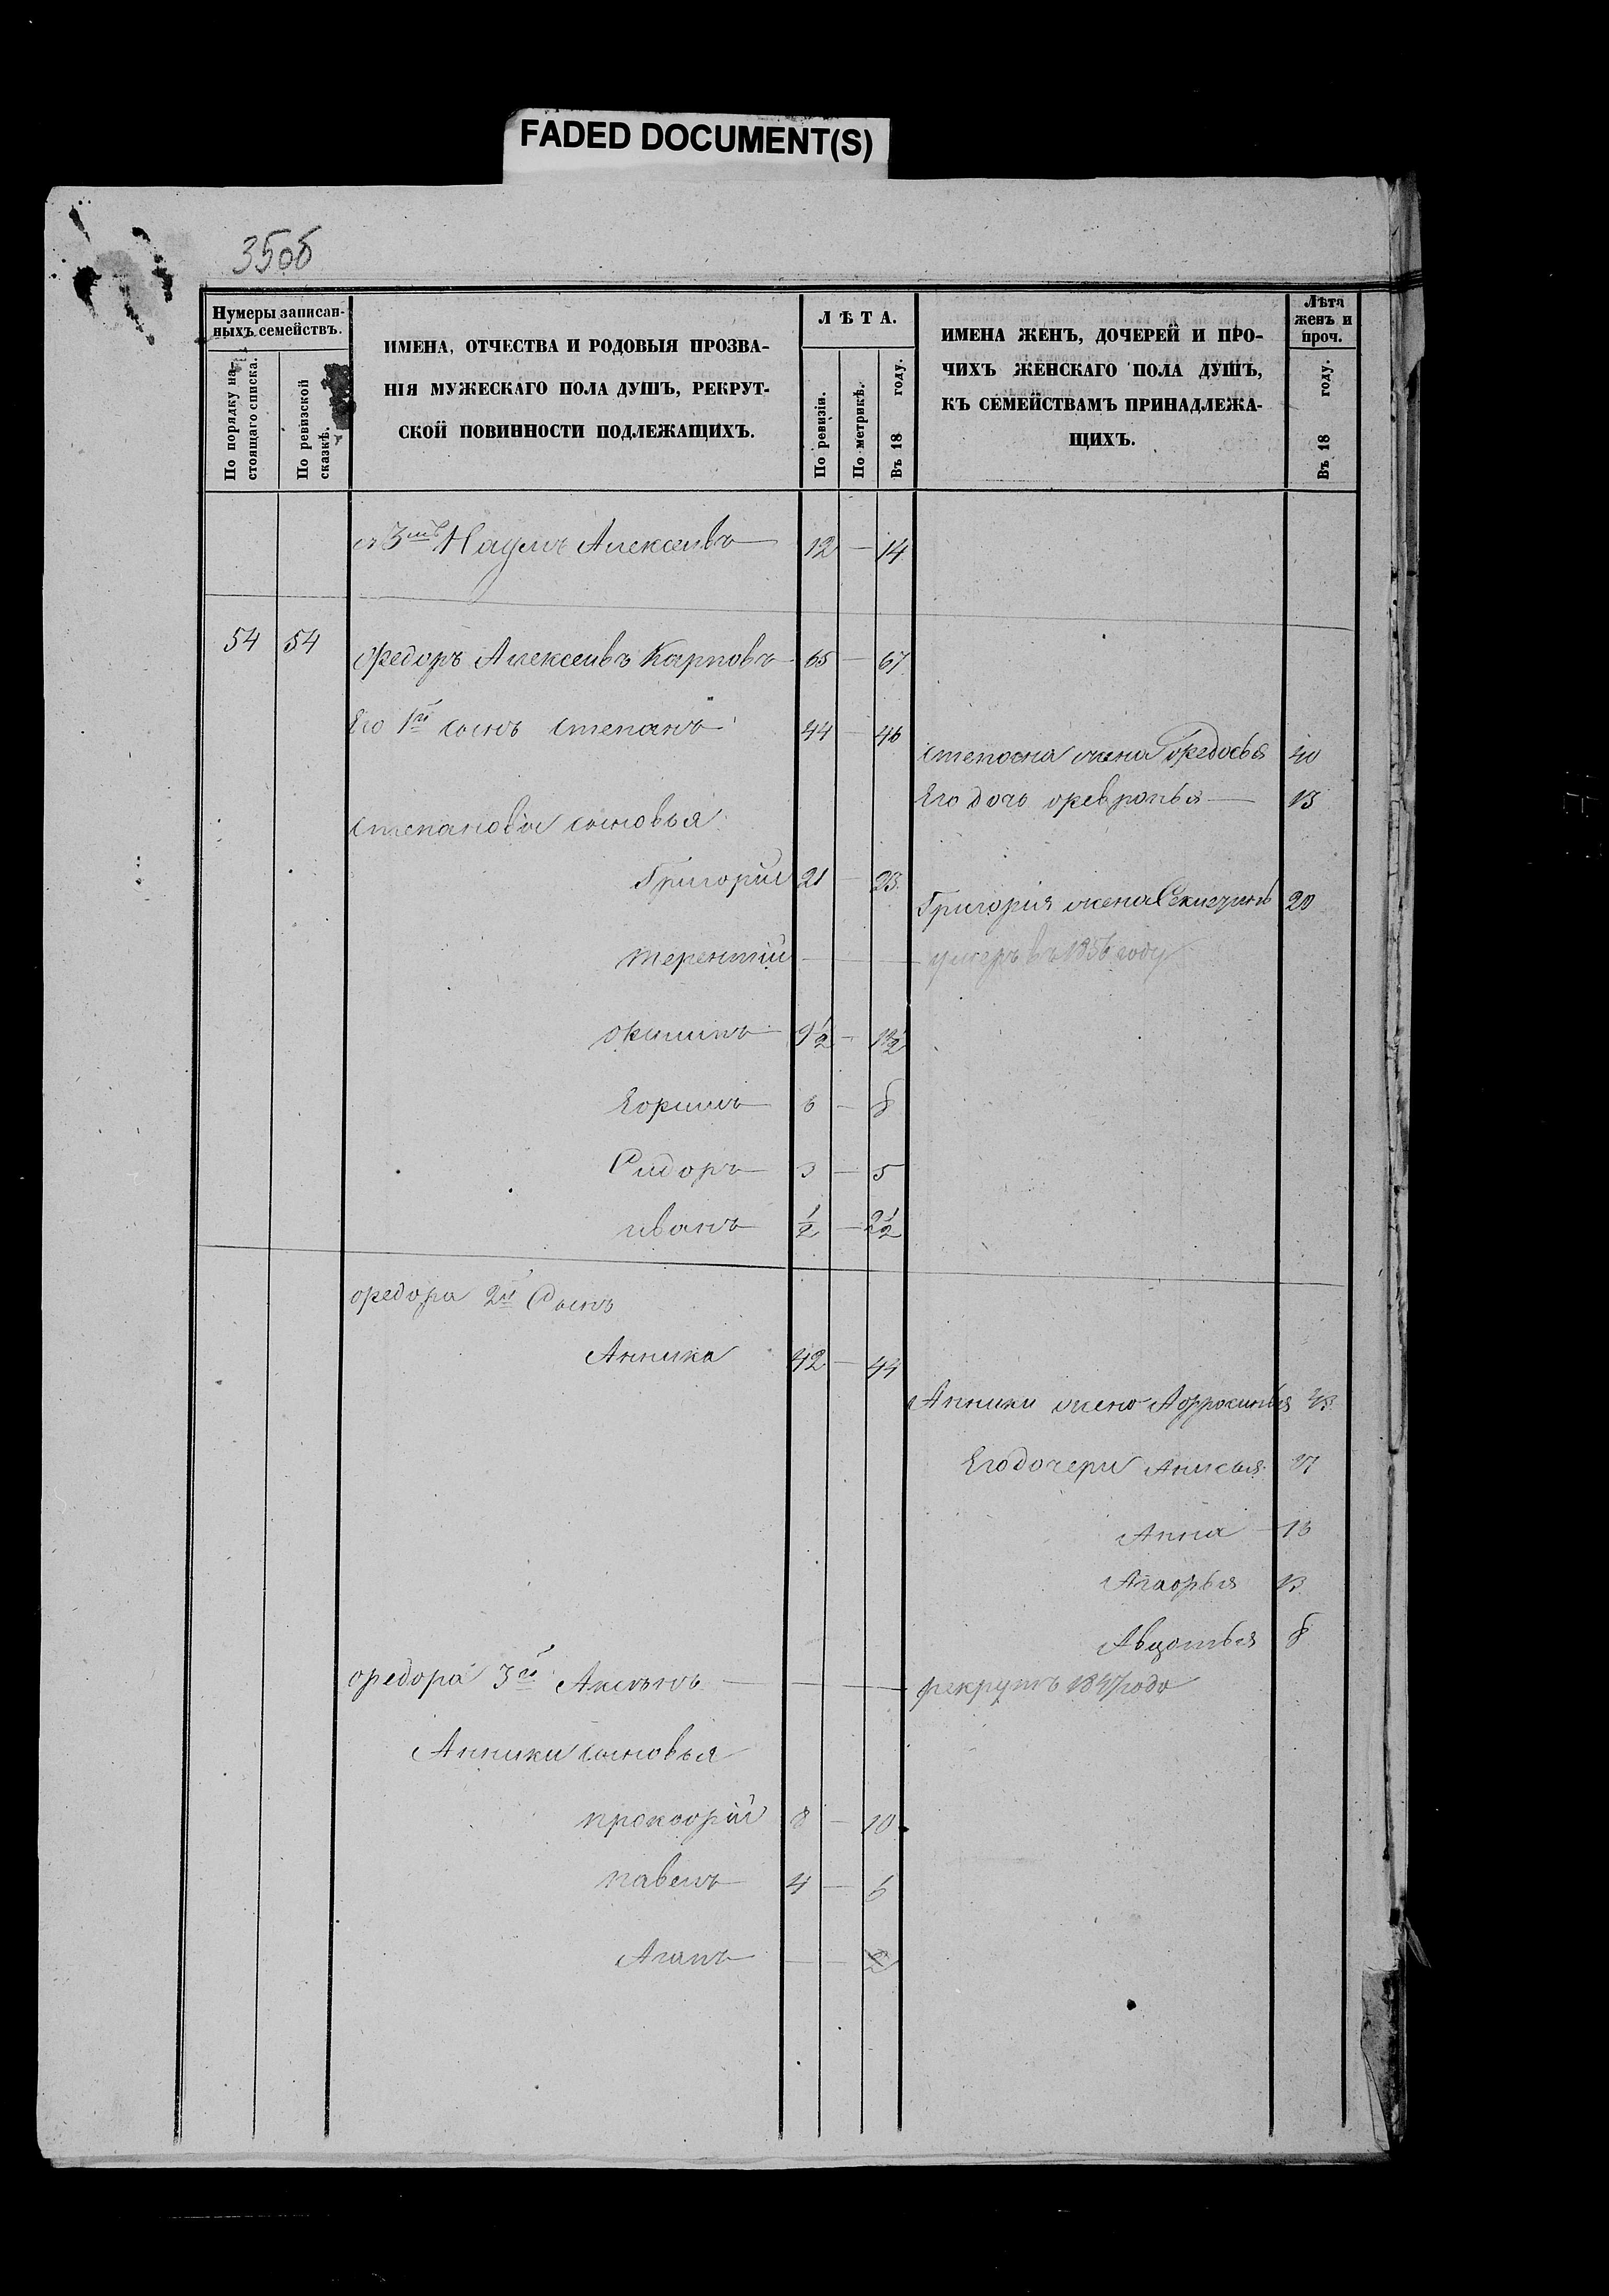 FADED DOCUMENT(S)
35об
Нумеры записан-
ныхъ семействъ.
По порядку на-
стоящаго списка.
По ревизской
сказкѣ.
ИМЕНА, ОТЧЕСТВА И РОДОВЫЯ ПРОЗВА-
НІЯ МУЖЕСКАГО ПОЛА ДУШЪ, РЕКРУТ-
СКОЙ ПОВИННОСТИ ПОДЛЕЖАЩИХЪ.
ЛѢТА.
По ревизіи.
По метрикѣ.
Въ 18 году.
ИМЕНА ЖЕНЪ, ДОЧЕРЕЙ И ПРО-
ЧИХЪ ЖЕНСКАГО ПОЛА ДУШЪ,
КЪ СЕМЕЙСТВАМЪ ПРИНАДЛЕЖА-
ЩИХЪ.
Лѣта
женъ и
проч.
Въ 18 году.
Наумъ Алексеивъ 12 — 14
54 54 Федоръ Алексеивъ Карповъ 65 — 67
Его 1й сынъ степанъ 44 — 46
степана жена Федосья 40
Его дочь февронья — 13
степановы сыновья
Григорий 21 — 23
Григория жена 20
терентий — — умеръ въ 1856 году
9 1/2 —
Ефимъ 6 — 8
Сидоръ 3 — 5
иванъ 1/2 — 2 1/2
федора 2й Сынъ
Анника 42 — 44
Анники жена Афросинья
Его дочери Анисья 17
Анна —
Агафья 13
Авдотья 8
федора 3й — — — рекрутъ 1847 года
Анники сыновья
прокофий 8 — 10
павелъ 4 — 6
Агапъ — — 2